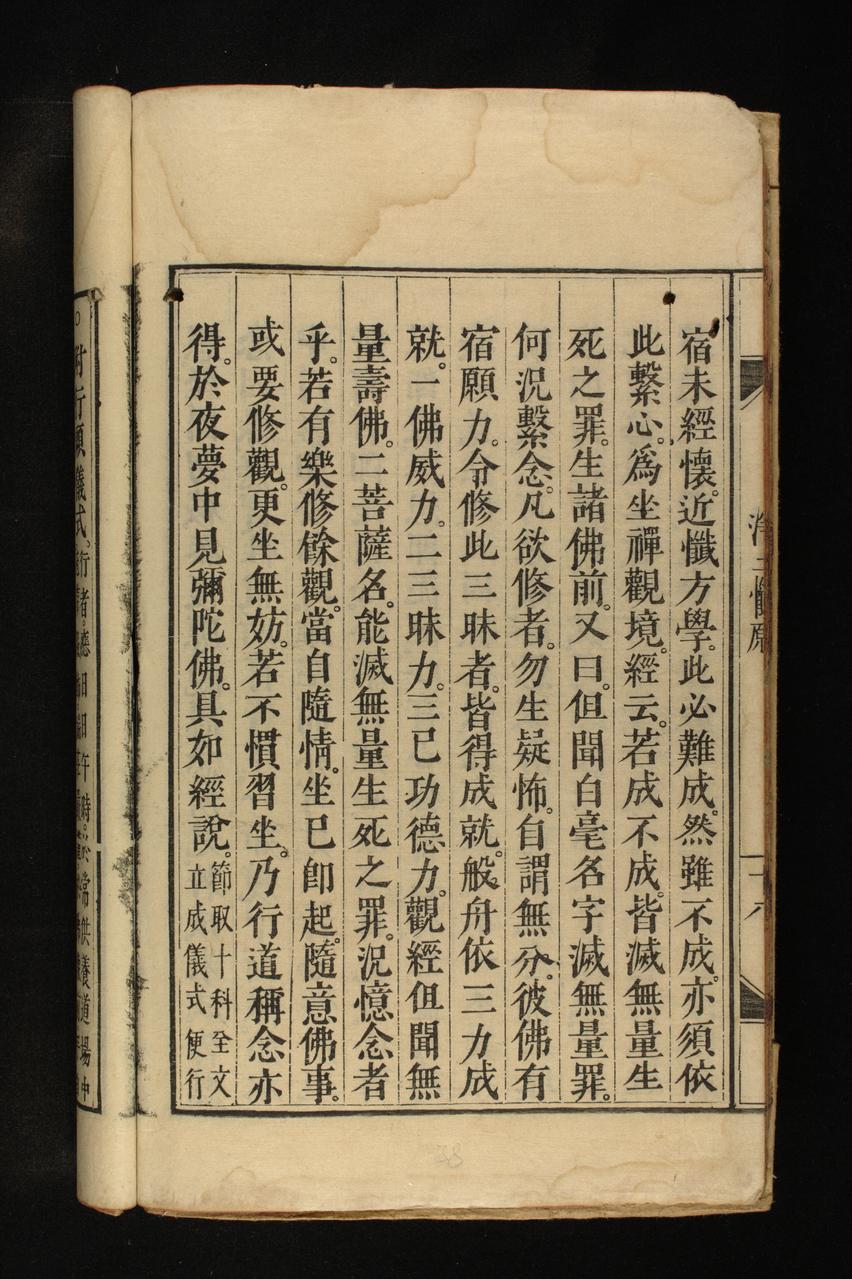 宿未經懷。近懺方學。此必難成。然雖不成。亦須依
此繫心。爲坐禪觀境。經云。若成不成。皆滅無量生
死之罪。生諸佛前。又曰。但聞白毫名字。滅無量罪。
何況繫念。凡欲修者。勿生疑怖。自謂無分。彼佛有
宿願力。令修此三昧者。皆得成就。般舟依三力成
就。一佛威力。二三昧力。三已功德力。觀經但聞無
量壽佛。二菩薩名。能滅無量生死之罪。況憶念者
乎。若有樂修餘觀。當自隨情。坐已卽起。隨意佛事。
或要修觀。更坐無妨。若不慣習坐。乃行道稱念亦
得。於夜夢中見彌陀佛。具如經說。節取十科全文
立成儀式便行
儀式。行者應日日午時。
常供養道場中